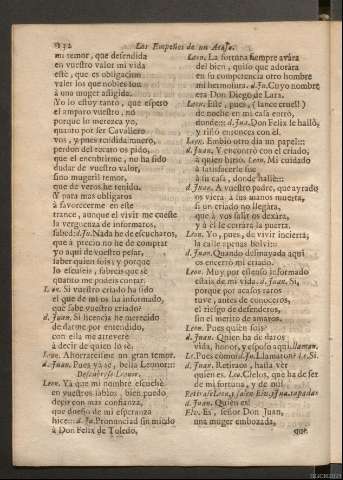 Los Empeños de un Acaso.
mi temor, que defendida
en vuestro valor mi vida
estè, que es obligacion
valer los que nobles son
à una muger afligida.
Yo lo estoy tanto, que espero
el amparo vuestro, no
porque lo merezca yo,
quanto por ser Cavallero
vos, y pues rendida muero,
perdon del recato os pido,
que el encubrirme, no ha sido
dudar de vuestro valor,
sino mugeril temor,
que de veros he tenido.
Y para mas obligaros
à favorecerme en este
trance, aunque el vivir me cueste
la verguença de informaros,
sabed: d.Ju. Nada he de escucharos,
que à precio no he de comprar
yo aqui de vuestro pesar,
saber quien sois; y porque
lo escuseis, sabreis que sè
quanto me puedo contar.
Leon. Si vuestro criado ha sido
el que de mi os ha informado,
que sabe vuestro criado?
d. Juan. Si licencia he merecido
de darme por entendido,
con ella me atreverè
à decir de quien lo sè.
Leo. Ahorrareisme un gran temor.
d. Juan. Pues ya sè, bella Leonor:::
Descubrese Leonor.
Leon. Yà que mi nombre escuchè
en vuestros labios, bien puedo
decir con mas confiança,
que dueño de mi esperança
hice::: d.Ju. Pronunciad sin miedo
à Don Felix de Toledo,
Leon. La fortuna siempre avara
del bien, quiso que adorára
en su competencia otro hombre
mi hermosura. d.Ju. Cuyo nombre
era Don Diego de Lara.
Leon. Este, pues, (lance cruel!)
de noche en mi casa entrò,
donde::: d.Jua. Don Felix le hallò,
y riñò entonces con èl.
Leon. Embiò otro dia un papel:::
d. Juan. Y encontrò con el criado,
à quien hiriò. Leon. Mi cuidado
à satisfacerle fue
à su casa, donde hallè:::
d. Jua. A vuestro padre, que ayrado
os viera à sus manos muerta,
si un criado no llegára,
que à vos salir os dexára,
y à èl le cerrára la puerta.
Leon. Yo, pues, de vivir incierta,
la calle apenas bolvi:::
d. Juan. Quando desmayada aqui
os encerrò mi criado.
Leon. Muy por estenso informado
estais de mi vida. d. Juan. Si,
porque por acasos raros
tuve, antes de conoceros,
el riesgo de defenderos,
sin el merito de amaros.
Leon. Pues quièn sois?
d. Juan. Quien ha de daros
vida, honor, y esposo aqui. llaman.
Le. Pues còmo? d.Ju. Llamaron? Le. Si.
d. Juan. Retiraos, hasta ver
quien es. Leo. Cielos, que ha de ser
de mi fortuna, y de mi!
d. Juan. Quièn es?
Elv. Es, señor Don Juan,
una muger embozada,
que